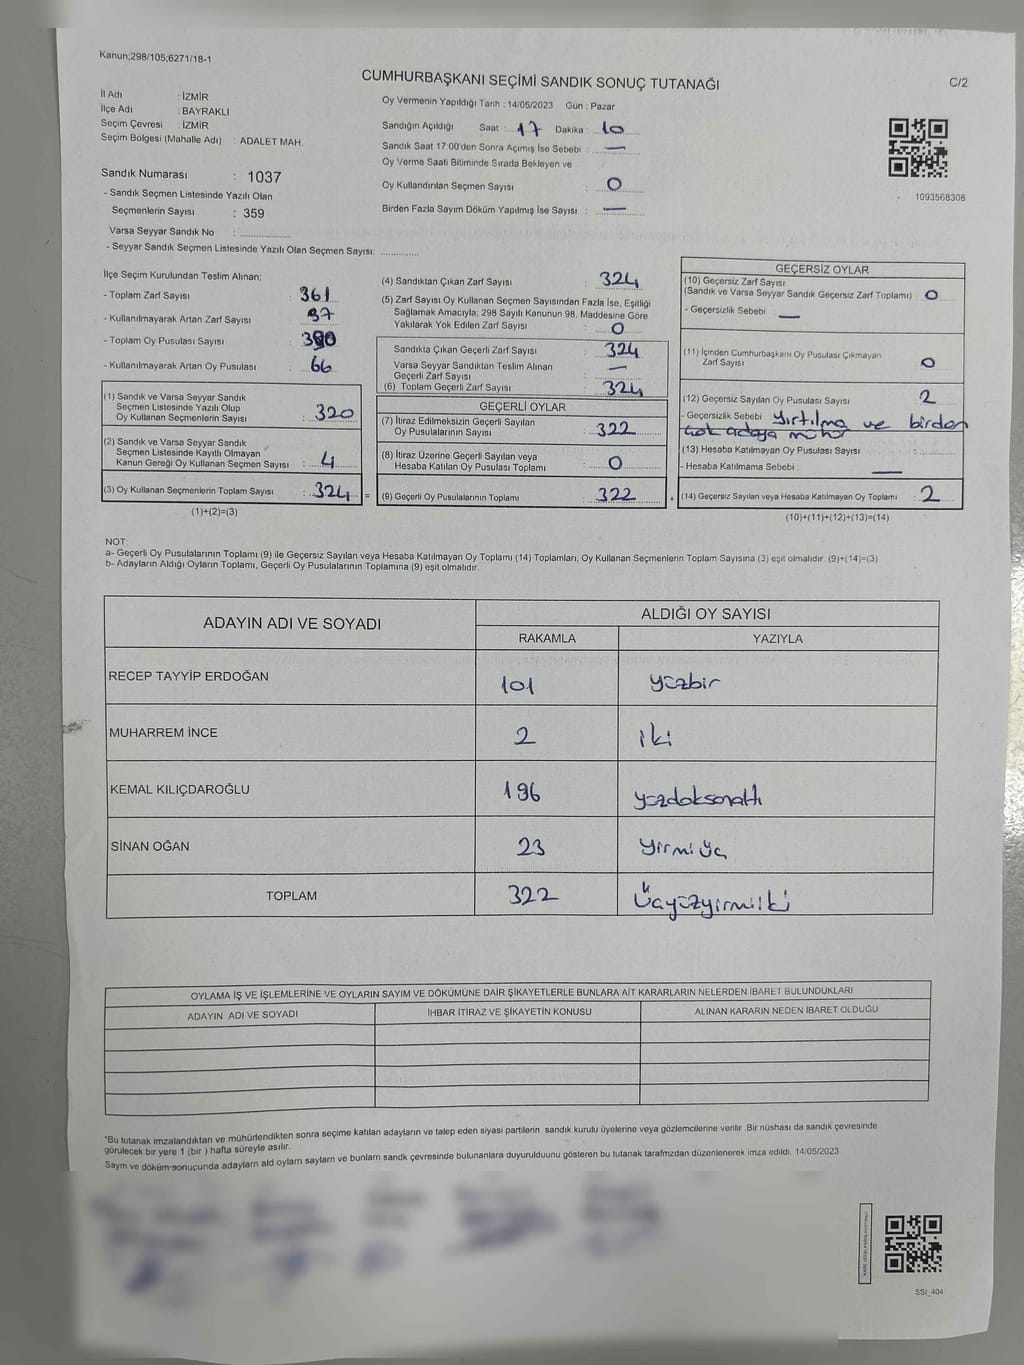 Kanun;298/105;6271/18-1
CUMHURBAŞKANI SEÇİMİ SANDIK SONUÇ TUTANAĞI
C/2
İl Adı : İZMİR
İlçe Adı : BAYRAKLI
Seçim Çevresi : İZMİR
Seçim Bölgesi (Mahalle Adı) : ADALET MAH.
Sandık Numarası : 1037
- Sandık Seçmen Listesinde Yazılı Olan
Seçmenlerin Sayısı : 359
Varsa Seyyar Sandık No :
- Seyyar Sandık Seçmen Listesinde Yazılı Olan Seçmen Sayısı:
Oy Vermenin Yapıldığı Tarih : 14/05/2023 Gün : Pazar
Sandığın Açıldığı Saat : 17 Dakika : 10
Sandık Saat 17:00'den Sonra Açımış İse Sebebi : —
Oy Verme Saati Bitiminde Sırada Bekleyen ve
Oy Kullandırılan Seçmen Sayısı : 0
Birden Fazla Sayım Döküm Yapılmış İse Sayısı : —
1093568308
İlçe Seçim Kurulundan Teslim Alınan;
- Toplam Zarf Sayısı : 361
- Kullanılmayarak Artan Zarf Sayısı : 37
- Toplam Oy Pusulası Sayısı : 390
- Kullanılmayarak Artan Oy Pusulası : 66
(1) Sandık ve Varsa Seyyar Sandık
Seçmen Listesinde Yazılı Olup
Oy Kullanan Seçmenlerin Sayısı : 320
(2) Sandık ve Varsa Seyyar Sandık
Seçmen Listesinde Kayıtlı Olmayan
Kanun Gereği Oy Kullanan Seçmen Sayısı : 4
(3) Oy Kullanan Seçmenlerin Toplam Sayısı : 324 =
(1)+(2)=(3)
(4) Sandıktan Çıkan Zarf Sayısı : 324
(5) Zarf Sayısı Oy Kullanan Seçmen Sayısından Fazla İse, Eşitliği
Sağlamak Amacıyla; 298 Sayılı Kanunun 98. Maddesine Göre
Yakılarak Yok Edilen Zarf Sayısı : 0
Sandıkta Çıkan Geçerli Zarf Sayısı : 324
Varsa Seyyar Sandıktan Teslim Alınan
Geçerli Zarf Sayısı : —
(6) Toplam Geçerli Zarf Sayısı : 324
GEÇERLİ OYLAR
(7) İtiraz Edilmeksizin Geçerli Sayılan
Oy Pusulalarının Sayısı : 322
(8) İtiraz Üzerine Geçerli Sayılan veya
Hesaba Katılan Oy Pusulası Toplamı : 0
(9) Geçerli Oy Pusulalarının Toplamı : 322 +
GEÇERSİZ OYLAR
(10) Geçersiz Zarf Sayısı
(Sandık ve Varsa Seyyar Sandık Geçersiz Zarf Toplamı) : 0
- Geçersizlik Sebebi : —
(11) İçinden Cumhurbaşkanı Oy Pusulası Çıkmayan
Zarf Sayısı : 0
(12) Geçersiz Sayılan Oy Pusulası Sayısı : 2
- Geçersizlik Sebebi Yırtılma ve birden
çok adaya mühür
(13) Hesaba Katılmayan Oy Pusulası Sayısı :
- Hesaba Katılmama Sebebi : —
(14) Geçersiz Sayılan veya Hesaba Katılmayan Oy Toplamı : 2
(10)+(11)+(12)+(13)=(14)
NOT:
a- Geçerli Oy Pusulalarının Toplamı (9) ile Geçersiz Sayılan veya Hesaba Katılmayan Oy Toplamı (14) Toplamları, Oy Kullanan Seçmenlerin Toplam Sayısına (3) eşit olmalıdır. (9)+(14)=(3)
b- Adayların Aldığı Oyların Toplamı, Geçerli Oy Pusulalarının Toplamına (9) eşit olmalıdır.
ADAYIN ADI VE SOYADI
ALDIĞI OY SAYISI
RAKAMLA YAZIYLA
RECEP TAYYİP ERDOĞAN 101 yüzbir
MUHARREM İNCE 2 iki
KEMAL KILIÇDAROĞLU 196 yüzdoksanaltı
SİNAN OĞAN 23 yirmiüç
TOPLAM 322 Üçyüzyirmiiki
OYLAMA İŞ VE İŞLEMLERİNE VE OYLARIN SAYIM VE DÖKÜMÜNE DAİR ŞİKAYETLERLE BUNLARA AİT KARARLARIN NELERDEN İBARET BULUNDUKLARI
ADAYIN ADI VE SOYADI İHBAR İTİRAZ VE ŞİKAYETİN KONUSU ALINAN KARARIN NEDEN İBARET OLDUĞU
*Bu tutanak imzalandıktan ve mühürlendikten sonra seçime katılan adayların ve talep eden siyasi partilerin sandık kurulu üyelerine veya gözlemcilerine verilir .Bir nüshası da sandık çevresinde
görülecek bir yere 1 (bir ) hafta süreyle asılır.
Sayım ve döküm sonucunda adayların ald oyların sayların ve bunların sandık çevresinde bulunanlara duyurulduunu gösteren bu tutanak tarafmzdan düzenlenerek imza edildi. 14/05/2023
SSI_404